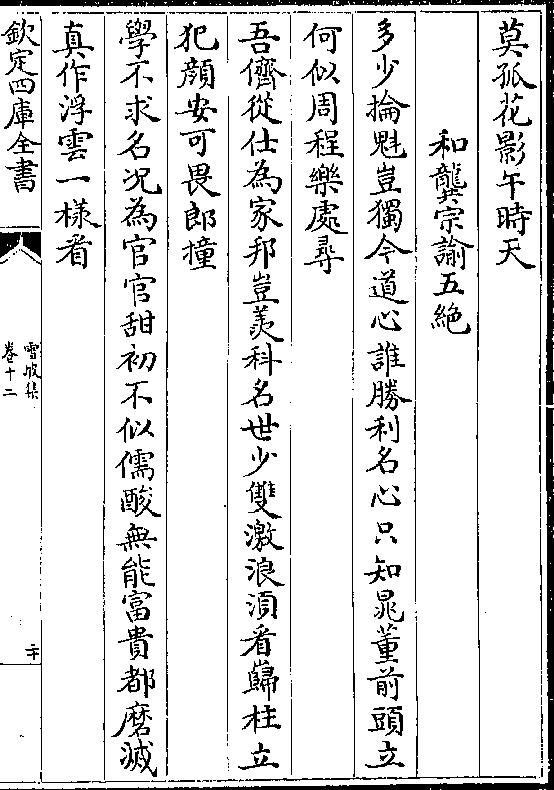 莫孤花影午時天
和龔宗諭五絶
多少掄魁豈獨今道心誰勝利名心只知鼂董前頭立
何似周程樂處尋
吾儕從仕為家邦豈羨科名世少雙激浪須看巋柱立
犯顔安可畏郎撞
學不求名况為官官甜初不似儒酸無能富貴都磨滅
真作浮雲一様看
欽定四庫全書
雪坡集
卷十二
二十